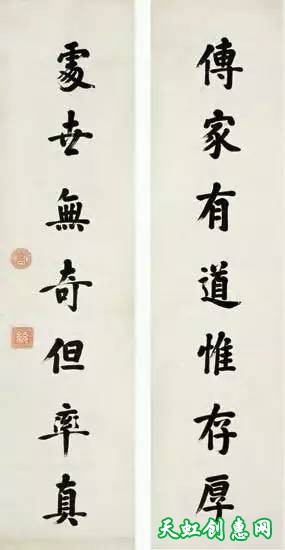 傳家有道惟存厚
處世無奇但率真
天虹创惠网